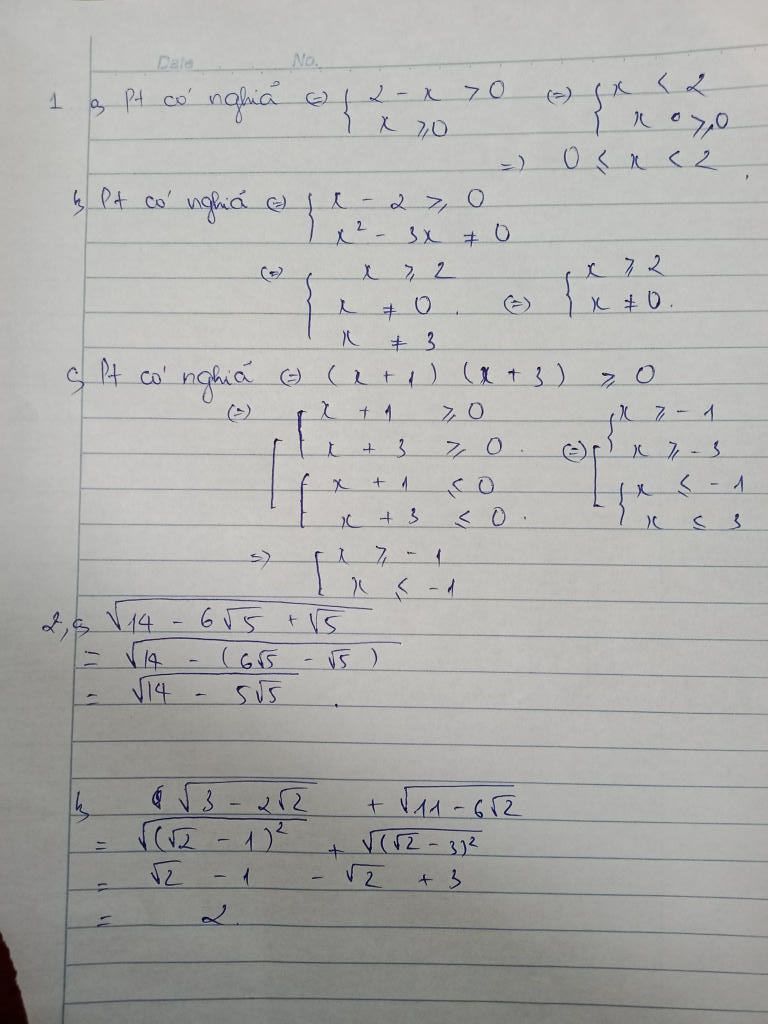 Date No.
1 a, Pt có nghĩa (=) { 2 - x > 0 (=) { x < 2
x ⩾ 0 x ⩾ 0
=) 0 ⩽ x < 2
b, Pt có nghĩa (=) { x - 2 ⩾ 0
x² - 3x ≠ 0
(=) { x ⩾ 2 (=) { x ⩾ 2
x ≠ 0 . x ≠ 0.
x ≠ 3
c, Pt có nghĩa (=) (x + 1) (x + 3) ⩾ 0
(=) [ { x + 1 ⩾ 0 (=) [ { x ⩾ - 1
x + 3 ⩾ 0 . x ⩾ - 3
{ x + 1 ⩽ 0 { x ⩽ - 1
x + 3 ⩽ 0 . x ⩽ 3
=) [ x ⩾ - 1
x ⩽ -1
2, a, √(14 - 6√5 + √5)
= √(14 - (6√5 - √5))
= √(14 - 5√5) .
b, √(3 - 2√2) + √(11 - 6√2)
= √((√2 - 1)²) + √((√2 - 3)²)
= √2 - 1 - √2 + 3
= 2.